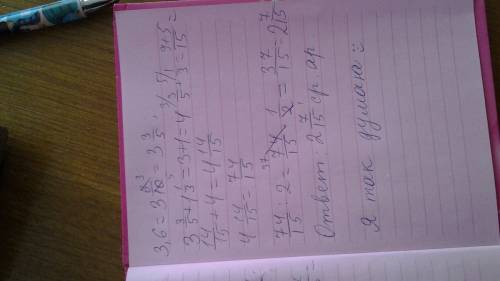 3,6 = 3 6/10 = 3 3/5
3 3/5 + 1 1/3 = 3+1 = 4 3/5 + 1/3 = 9+5/15 =
14/15 + 4 = 4 14/15
4 14/15 = 74/15
74/15 : 2 = 74/15 · 1/2 = 37/15 = 2 7/15
Ответ: 2 7/15 ср. ар
Я так думала